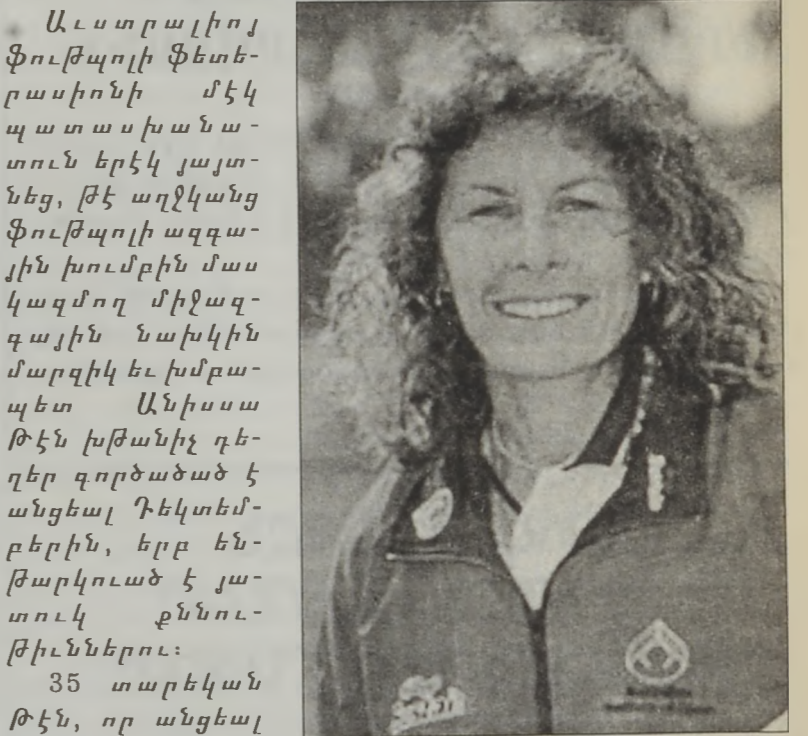 Աւստրալիոյ
ֆութպոլի ֆետե-
րասիոնի մէկ
պատասխանա-
տուն երէկ յայտ-
նեց, թէ աղջկանց
ֆութպոլի ազգա-
յին խումբին մաս
կազմող միջազ-
գային նախկին
մարզիկ եւ խմբա-
պետ Անիսսա
Թէն խթանիչ դե-
ղեր գործածած է
անցեալ Դեկտեմ-
բերին, երբ են-
թարկուած է յա-
տուկ քննու-
թիւններու։
35 տարեկան
Թէն, որ անցեալ